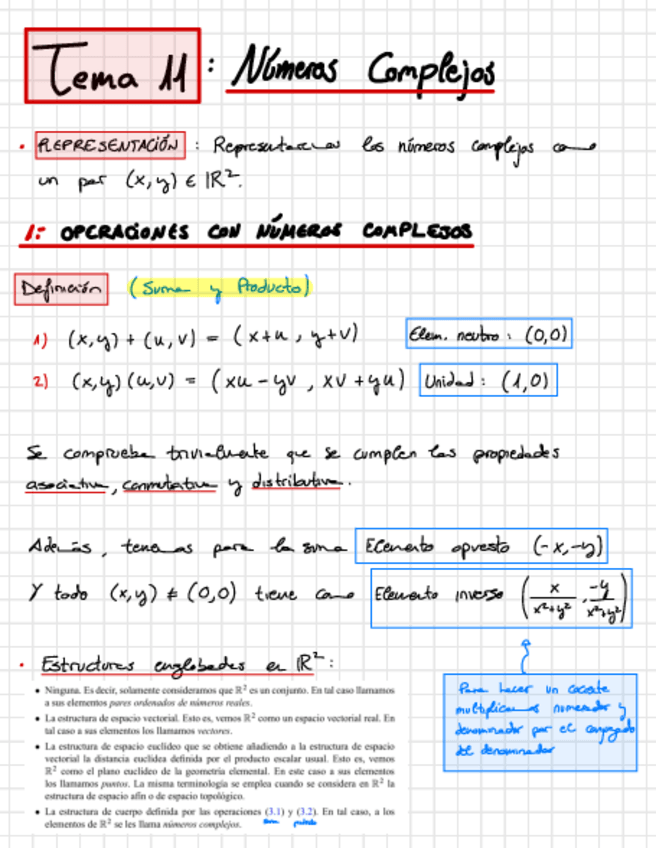 Tema 11 : Números Complejos
• REPRESENTACIÓN : Representaremos los números complejos como
un par (x,y) ∈ ℝ².
1: OPERACIONES CON NÚMEROS COMPLEJOS
Definición (Suma y Producto)
1) (x,y) + (u,v) = (x+u , y+v) Elem. neutro : (0,0)
2) (x,y)(u,v) = (xu - yv , xv + yu) Unidad : (1,0)
Se comprueba trivialmente que se cumplen las propiedades
asociativa, conmutativa y distributiva.
Además, tenemos para la suma Elemento opuesto (-x,-y)
Y todo (x,y) ≠ (0,0) tiene como Elemento inverso (x/(x²+y²) , -y/(x²+y²))
• Estructuras englobadas en ℝ²:
• Ninguna. Es decir, solamente consideramos que ℝ² es un conjunto. En tal caso llamamos
a sus elementos pares ordenados de números reales.
• La estructura de espacio vectorial. Esto es, vemos ℝ² como un espacio vectorial real. En
tal caso a sus elementos los llamamos vectores.
• La estructura de espacio euclídeo que se obtiene añadiendo a la estructura de espacio
vectorial la distancia euclídea definida por el producto escalar usual. Esto es, vemos
ℝ² como el plano euclídeo de la geometría elemental. En este caso a sus elementos
los llamamos puntos. La misma terminología se emplea cuando se considera en ℝ² la
estructura de espacio afín o de espacio topológico.
• La estructura de cuerpo definida por las operaciones (3.1) y (3.2). En tal caso, a los
elementos de ℝ² se les llama números complejos.
suma producto
Para hacer un cociente
multiplicamos numerador y
denominador por el conjugado
del denominador